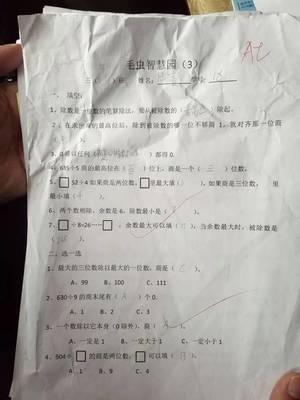 毛虫智慧园（3）
三（ ）班 姓名： 学号：
一、填空：
1、除数是一位数的笔算除法，要从被除数的（ ）除起。
2、在求出商的最高位后，除到被除数的哪一位不够商 1，就对齐那一位商
3、0 除以任何（ ）都得 0.
4、635÷5 商的最高位在（百）位上，商是一个（三）位数。
5、□52÷4 如果商是两位数，□里最大填（ ），如果商是三位数， 里
最小填（4）。
6、两个数相除，余数是 6，除数最小是（ ）。
7、□÷8=26……□，余数最大可以填（ ）当余数最大时，被除数是
（ ）。
二、选一选
1、最大的三位数除以最大的一位数，商是（C）。
A、99 B、100 C、111
2、630÷9 的商末尾有（A）个 0.
A、1 B、2 C、3
3、一个数除以它本身（0 除外），商（ ）。
A、一定是 1 B、一定大于 1 C、一定小于 1
4、504÷□的商是两位数，□可以填（B）。
A、1 B、9 C、4